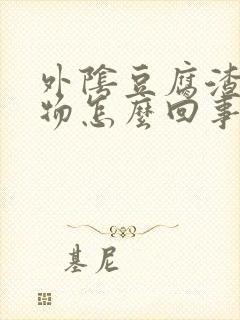 外陰豆腐渣
物怎麼回事
基尼